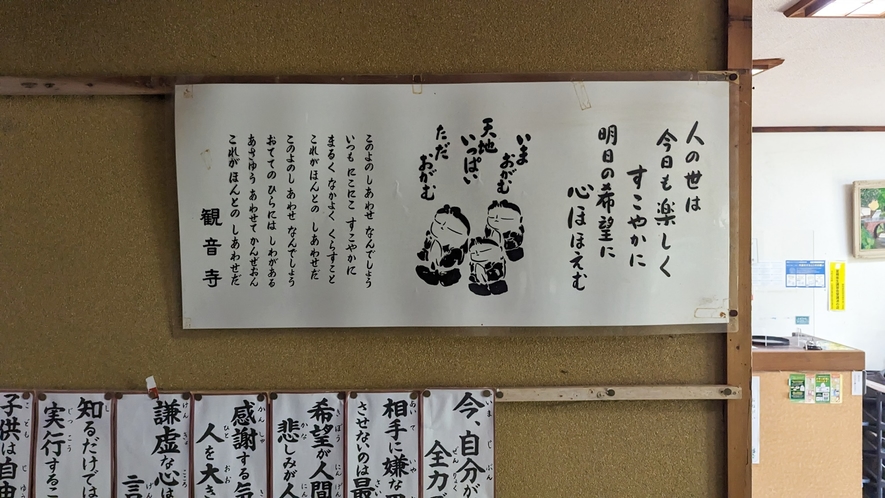 人の世は
今日も楽しく
すこやかに
明日の希望に
心ほほえむ
いま
おがむ
天地
いっぱい
ただ
おがむ
このよの しあわせ なんでしょう
いつも にこにこ すこやかに
まるく なかよく くらすこと
これがほんとの しあわせだ
このよのし あわせ なんでしょう
おてての ひらには しわがある
あさゆう あわせて かんぜおん
これがほんとの しあわせだ
観音寺
今、自分が
全力で
相手に嫌な
させないのは最
希望が人間
悲しみが人
感謝する気
人を大き
謙虚な心は
言
知るだけでは
実行するこ
子供は自由